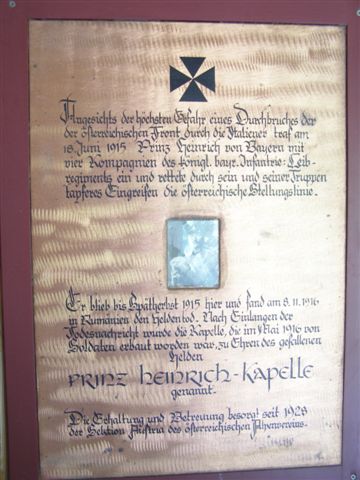 Angesichts der höchsten Gefahr eines Durchbruches der
der österreichischen Front durch die Italiener traf am
18. Juni 1915 Prinz Heinrich von Bayern mit
vier Kompagnien des königl. bayr. Infanterie-Leib-
regiments ein und rettete durch sein und seiner Truppen
tapferes Eingreifen die österreichische Stellungslinie.
Er blieb bis Spätherbst 1915 hier und fand am 8.11.1916
in Rumänien den Heldentod. Nach Einlangen der
Todesnachricht wurde die Kapelle, die im Mai 1916 von
Soldaten erbaut worden war, zu Ehren des gefallenen
Helden
PRINZ HEINRICH-KAPELLE
genannt.
Die Erhaltung und Betreuung besorgt seit 1928
der Sektion Austria des österreichischen Alpenvereins.